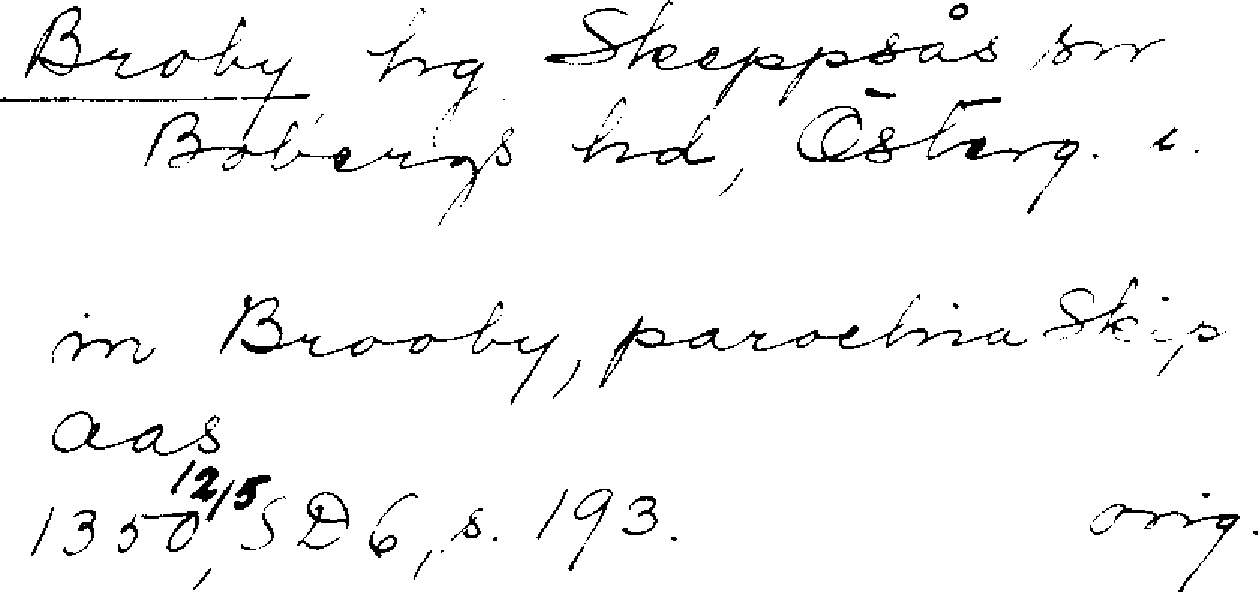 Broby hg Skeppsås sn
Bobergs hd, Österg. l.
in Brooby, parochia Skip
aas
1350 12/5, SD 6, s. 193. orig.